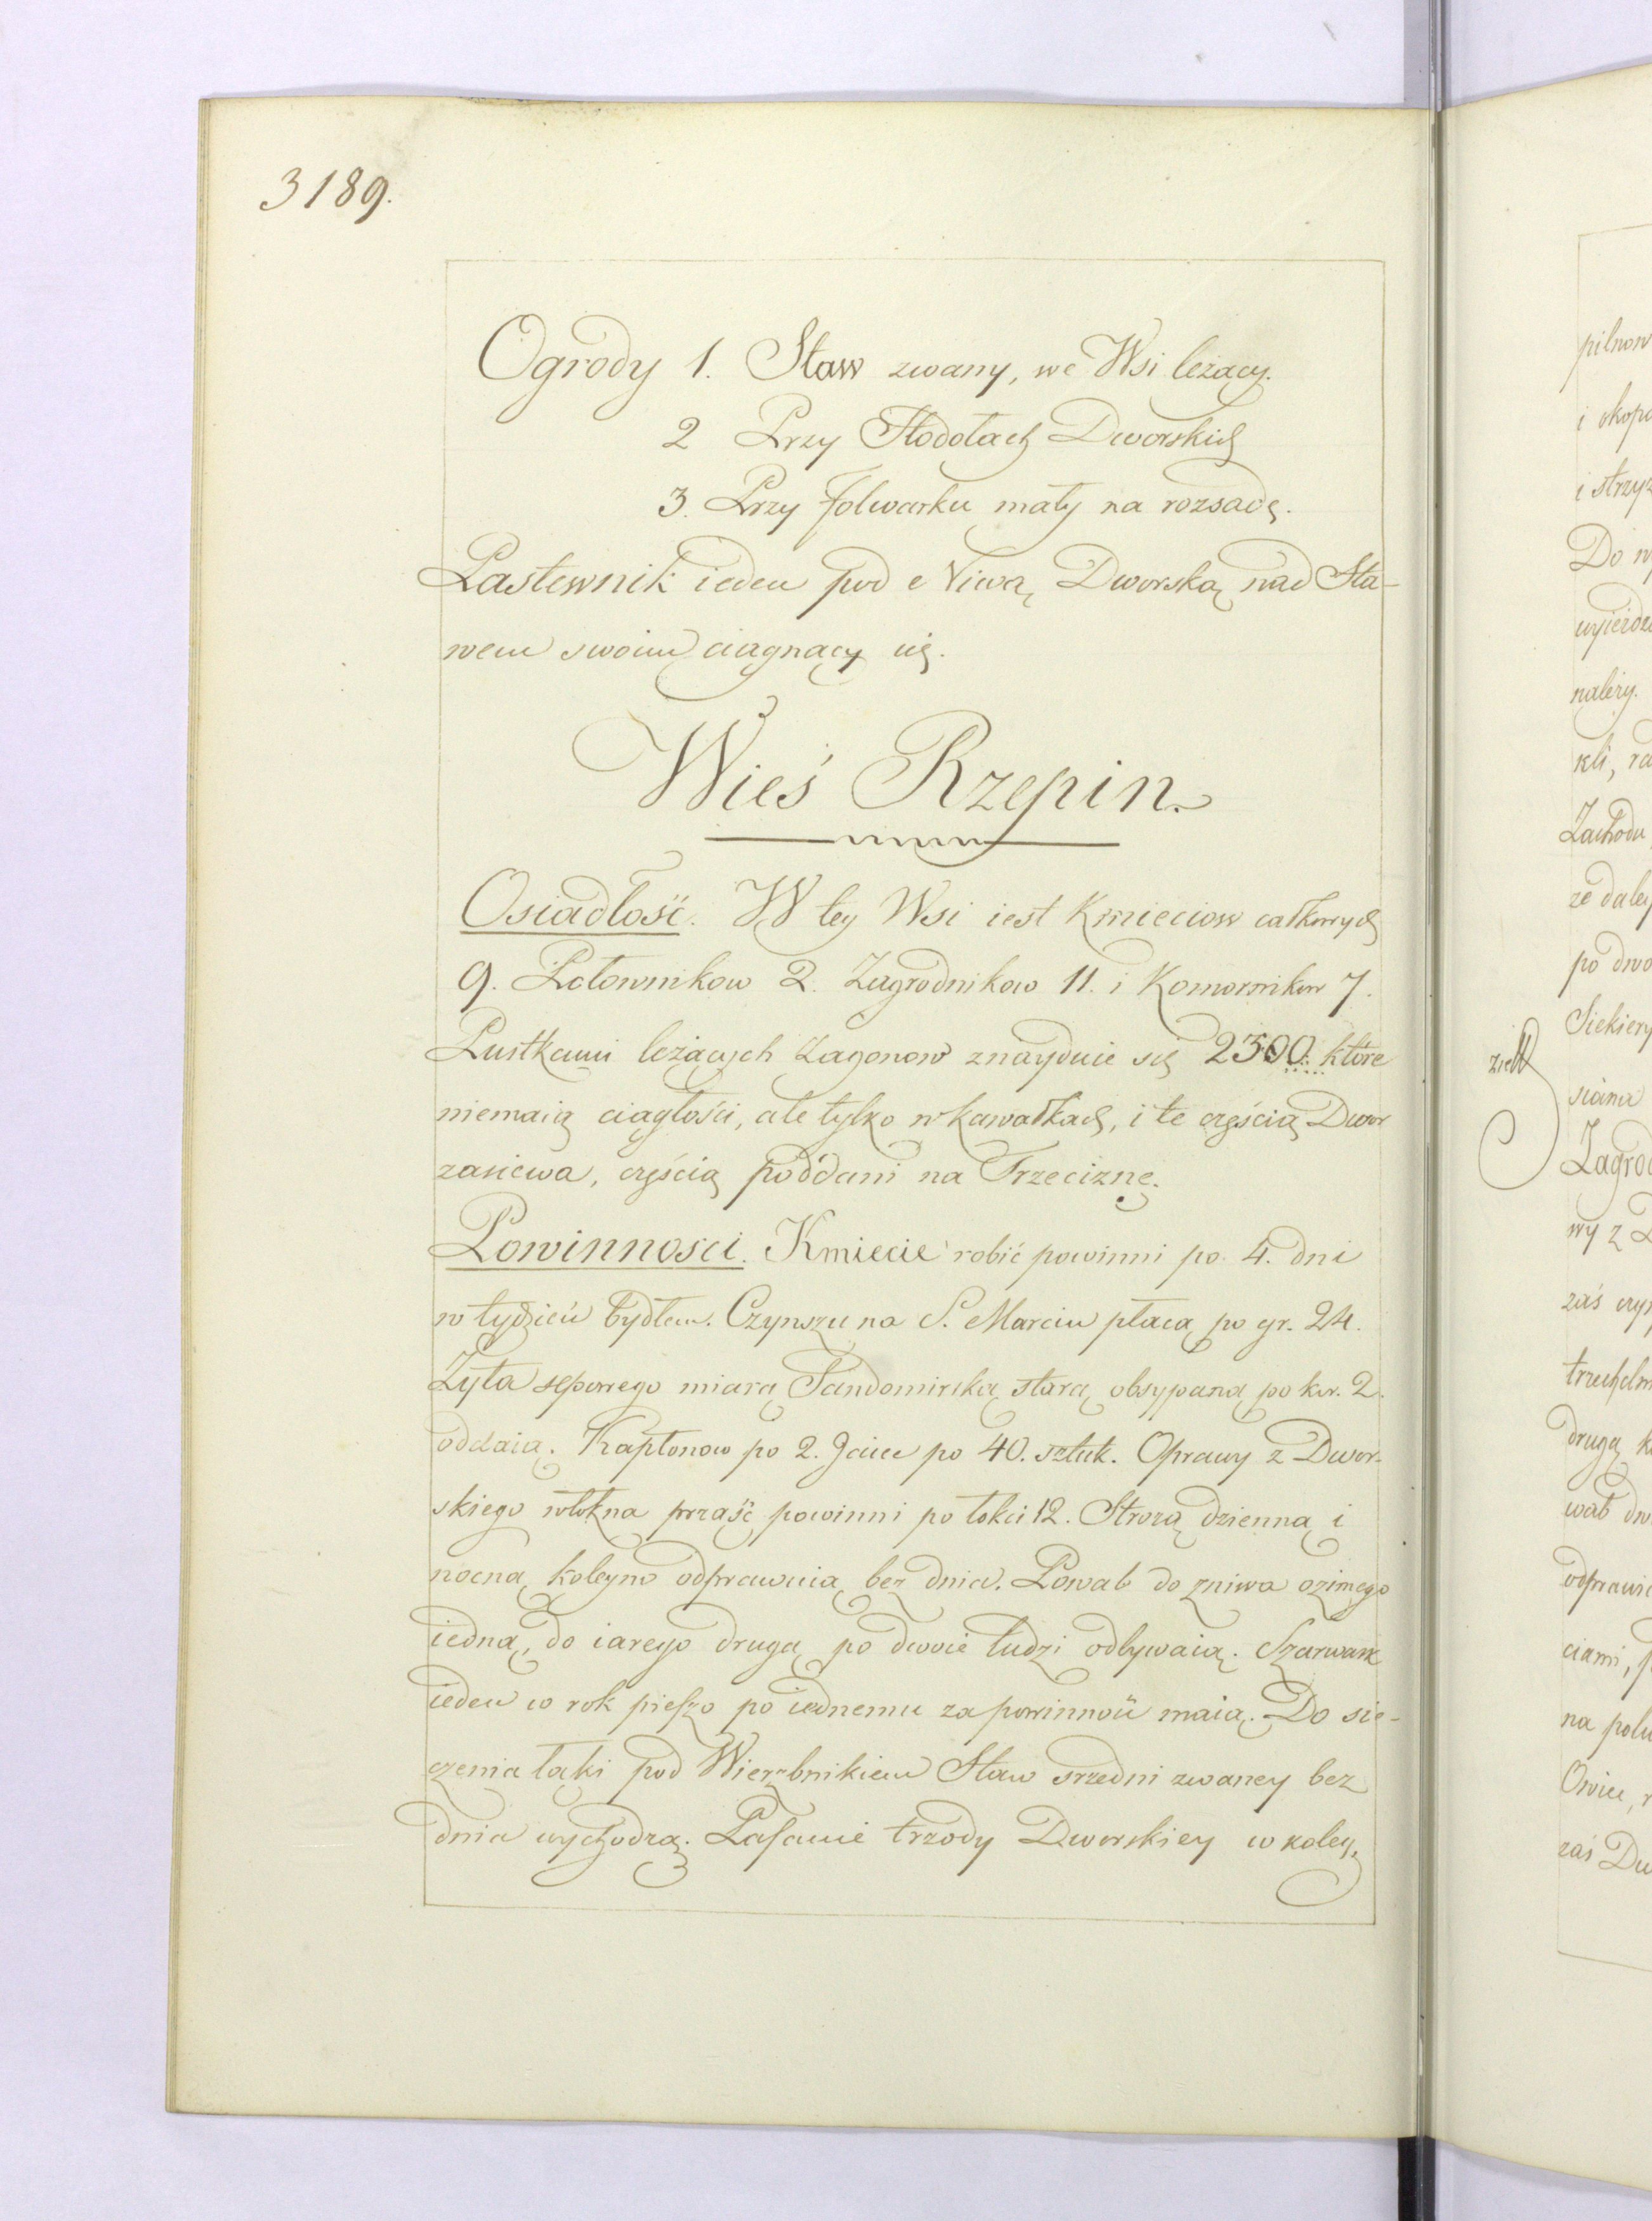 3189.
Ogrody 1. Staw zwany, we Wsi leżący.
2 Przy Stodołach Dworskich
3. Przy folwarku mały na rozsadę.
Pastewnik ieden pod Niwą Dworską nad Sta-
wem swoim ciagnący się.
Wieś Rzepin.
Osiadłość. W tey Wsi iest Kmieciow całkowych
9. Połownikow 2. Zagrodnikow 11. i Komornikow 7.
Pustkami leżących Zagonow znayduie się 2300. które
niemaią ciągłości, ale tylko w kawałkach, i te częścią Dwor
zasiewa, częścią poddani na Trzeciznę.
Powinnosci. Kmiecie robić powinni po 4. dni
w tydzień bydłem. Czynszu na S. Marcin płacą po gr. 24.
Żyta sepowego miarą Sandomirską starą obsypaną po kor. 2.
oddaią. Kapłonow po 2. Jaiec po 40. sztuk. Oprawy z Dwor-
skiego włókna prząść powinni po łokci 12. Strożą dzienną i
nocną koleyno odprawuią bez dnia. Powab do zniwa ozimego
iedną, do iarego drugą po dwoie ludzi odbywaią. Szarwark
ieden w rok pieszo po iednemu za powinność maią. Do sie-
czenia łąki pod Wierzbnikiem Staw srzedni zwaney bez
dnia wychodzą. Pasanie trzody Dworskiey w koley,
pilnow
i skopa
i strzyż
Do
należy.
kli,
Zachodu
ze daley
po dwo
Siekiery
siana
Zagrod
wy z
zaś
drugą
wał
odprawi
ciami,
na polu
zaś